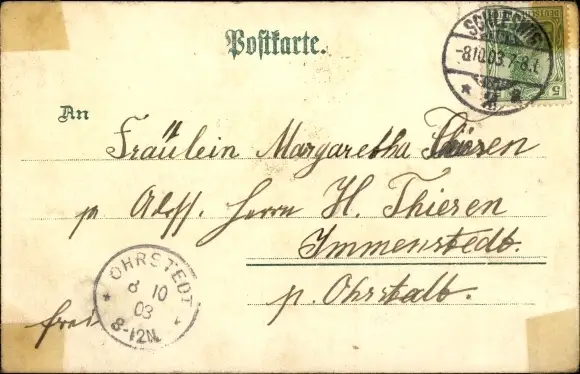 Postkarte.
SCHLESWIG
-8.10.03.7-8.V.
* 2 a
DEUTSCHES
5
An
Fräulein Margaretha Thiesen
p. Adss. Herrn H. Thiesen
Immenstedt.
p. Ohrstedt.
frei
OHRSTEDT
8 10
03
8-12N.